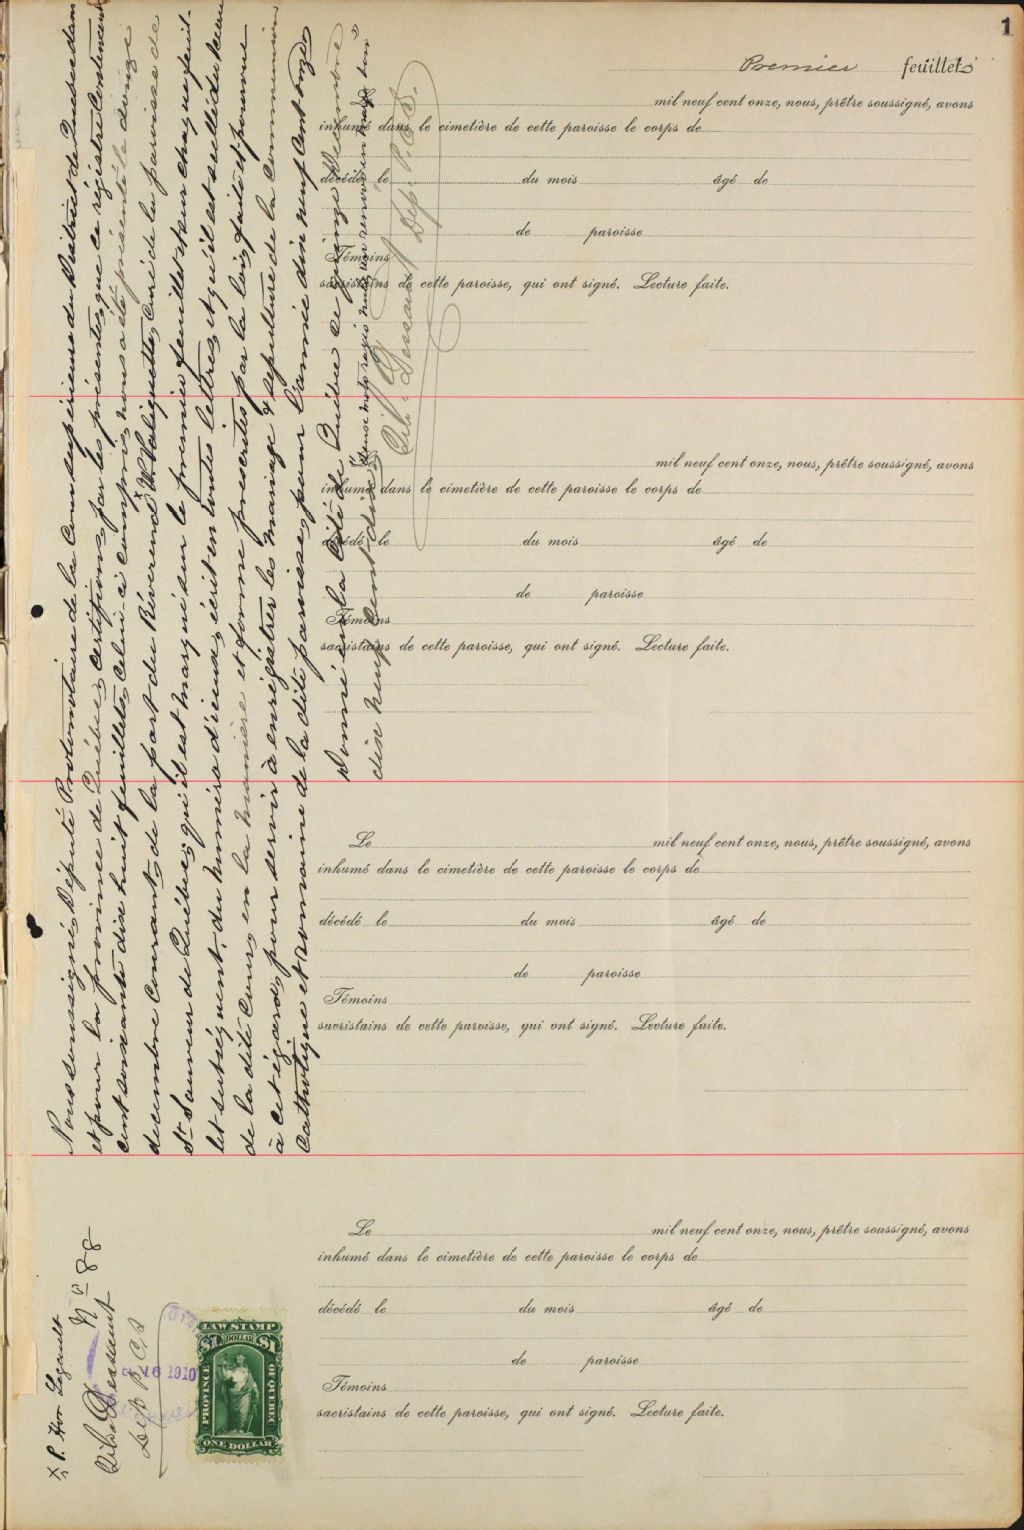 1
Premier feuillet
mil neuf cent onze, nous, prêtre soussigné, avons
inhumé dans le cimetière de cette paroisse le corps de
décédé le du mois âgé de
de paroisse
Témoins
sacristains de cette paroisse, qui ont signé. Lecture faite.
mil neuf cent onze, nous, prêtre soussigné, avons
inhumé dans le cimetière de cette paroisse le corps de
décédé le du mois âgé de
de paroisse
Témoins
sacristains de cette paroisse, qui ont signé. Lecture faite.
Le mil neuf cent onze, nous, prêtre soussigné, avons
inhumé dans le cimetière de cette paroisse le corps de
décédé le du mois âgé de
de paroisse
Témoins
sacristains de cette paroisse, qui ont signé. Lecture faite.
Le mil neuf cent onze, nous, prêtre soussigné, avons
inhumé dans le cimetière de cette paroisse le corps de
décédé le du mois âgé de
de paroisse
Témoins
sacristains de cette paroisse, qui ont signé. Lecture faite.
Nous soussigné, Député Protonotaire de la Cour supérieure du District de Québec dans
et pour la province de Québec, certifions par les présentes, que ce régistre contenant
cent soixante dix huit feuillets, celui-ci compris, nous a été présenté le donze
decembre courant, de la part du Révérend x V. Valiquette, Curé de la paroisse de
St Sauveur de Québec; qu'il est marqué sur le premier feuillet & sur chaque feuil-
let subséquent, du numéro d'iceux, écrit en toutes lettres, et qu'il est scellé du sceau
de la dite Cour, en la manière et forme prescrites par la loi, fait et pourvu
à cet égard, pour servir à enrégistrer les mariage & sepulture de la communion
Catholique et romaine de la dite paroisse, pour l'année dix neuf cent onze
Donné en la Cité de Québec ce quinze Decembre
dix neuf cent dix
deux mots rayés nuls, un renvoi en marge bon
Dessaint Dep. P.C.S.
x P. Hon Legault
No 88
Dessaint
Dep P.C.S
16 1910
LAW STAMP
$1 DOLLAR $1
PROVINCE OF QUEBEC
ONE DOLLAR